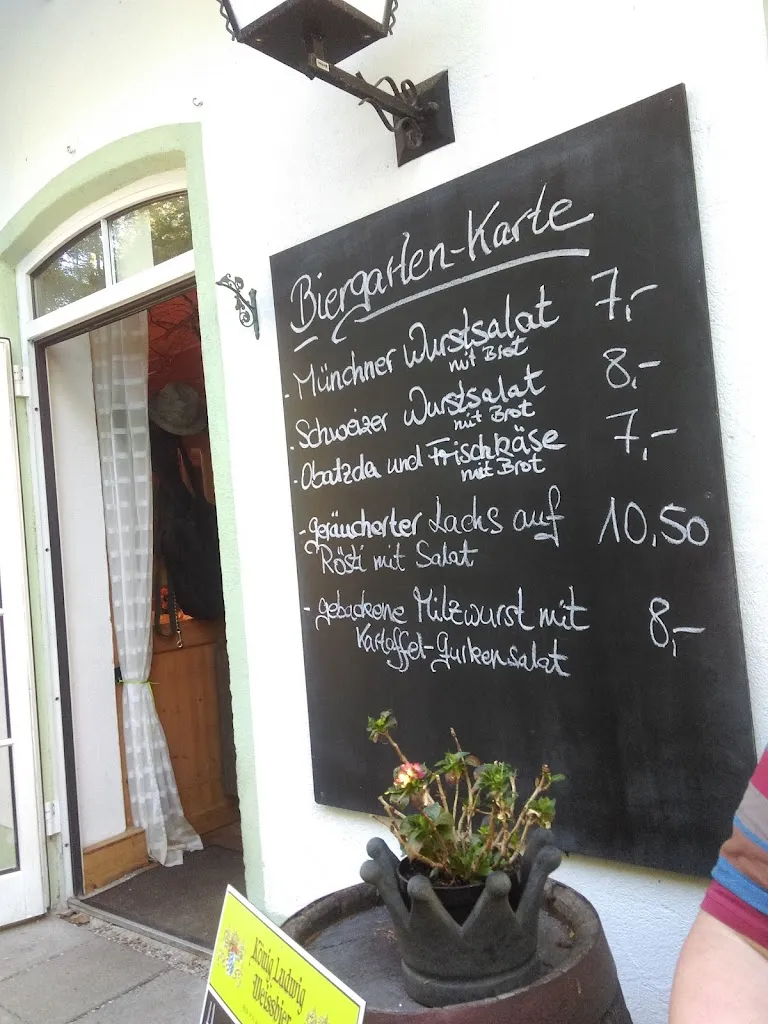 Biergarten-Karte
- Münchner Wurstsalat 7,-
mit Brot
- Schweizer Wurstsalat 8,-
mit Brot
- Obatzda und Frischkäse 7,-
mit Brot
- geräucherter Lachs auf 10,50
Rösti mit Salat
- gebackene Milzwurst mit 8,-
Kartoffel-Gurkensalat
König Ludwig
Weissbier